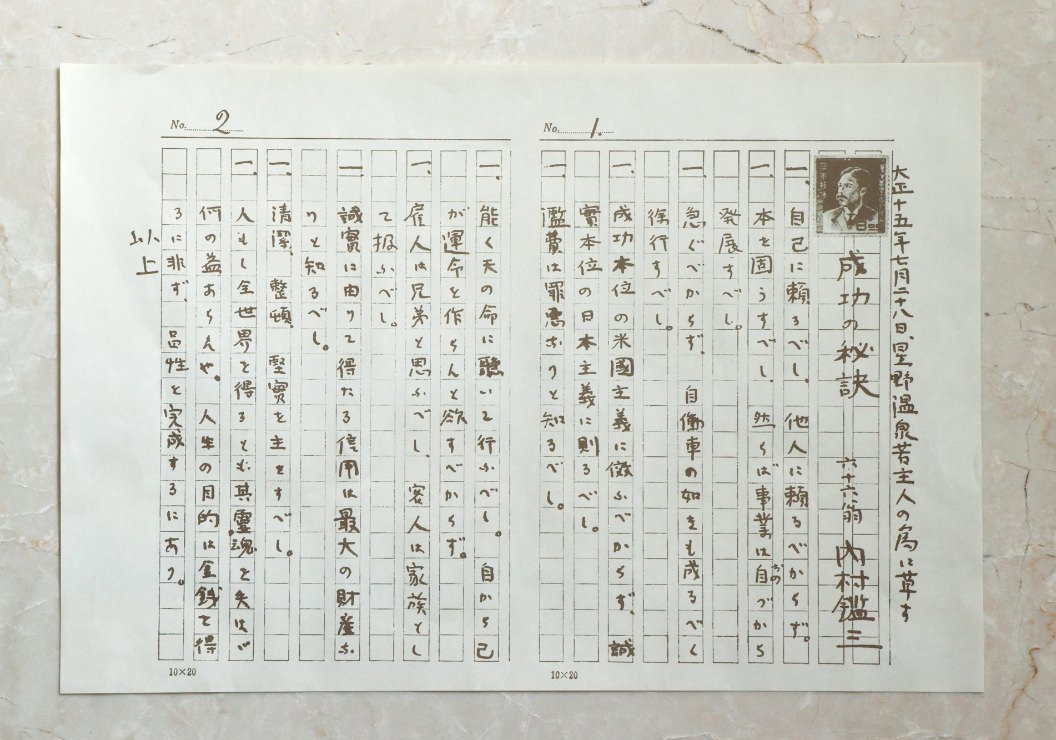 大正十五年七月二十八日、星野温泉若主人の為に草す
成功の秘訣　六十六翁　内村鑑三
No. 1.
一、自己に頼るべし、他人に頼るべからず。
一、本を固うすべし、然らば事業は自(おの)づから
発展すべし。
一、急ぐべからず、自働車の如きも成るべく
徐行すべし。
一、成功本位の米國主義に倣ふべからず、誠
實本位の日本主義に則るべし。
一、濫費は罪悪なりと知るべし。
10×20
No. 2
一、能く天の命に聽いて行ふべし。自から己
が運命を作らんと欲すべからず。
一、雇人は兄弟と思ふべし、客人は家族とし
て扱ふべし。
一、誠實に由りて得たる信用は最大の財産な
りと知るべし。
一、清潔、整頓、堅實を主とすべし。
一、人もし全世界を得るとも其靈魂を失はゞ
何の益あらんや。人生の目的は金銭を得
るに非ず、品性を完成するにあり。
以上
10×20